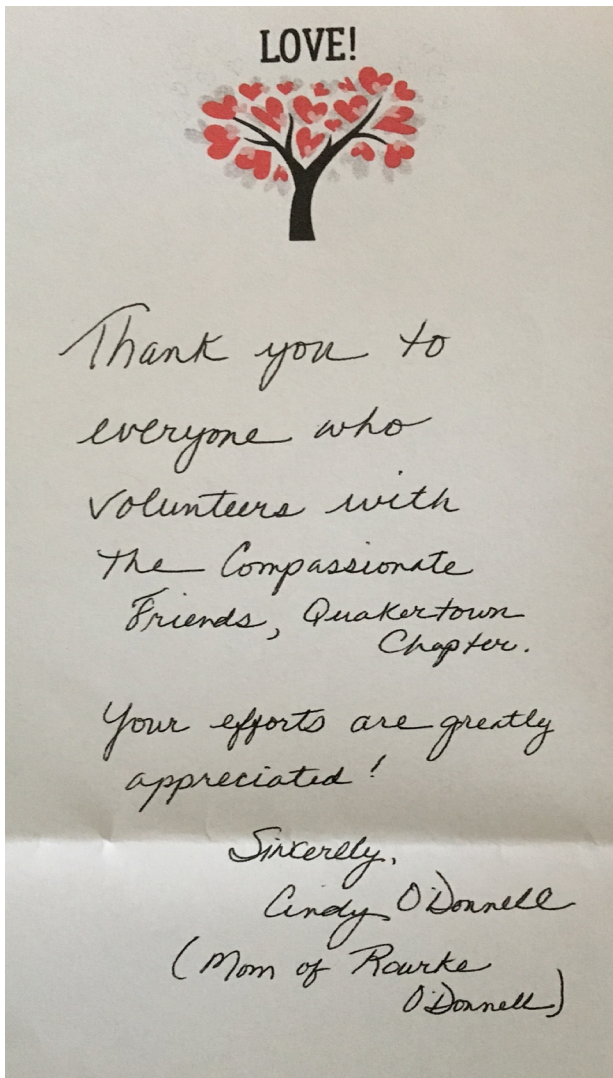 LOVE!
Thank you to
everyone who
volunteers with
The Compassionate
Friends, Quakertown
Chapter.
Your efforts are greatly
appreciated!
Sincerely,
Cindy O'Donnell
(Mom of Rourke
O'Donnell)